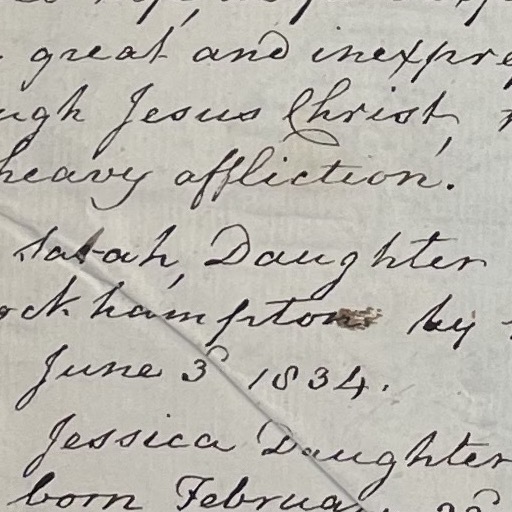 great and inexpre
ugh Jesus Christ,
heavy affliction.
Sarah, Daughter
ockhampton by
June 3d 1834.
Jessica Daughter
born Februa